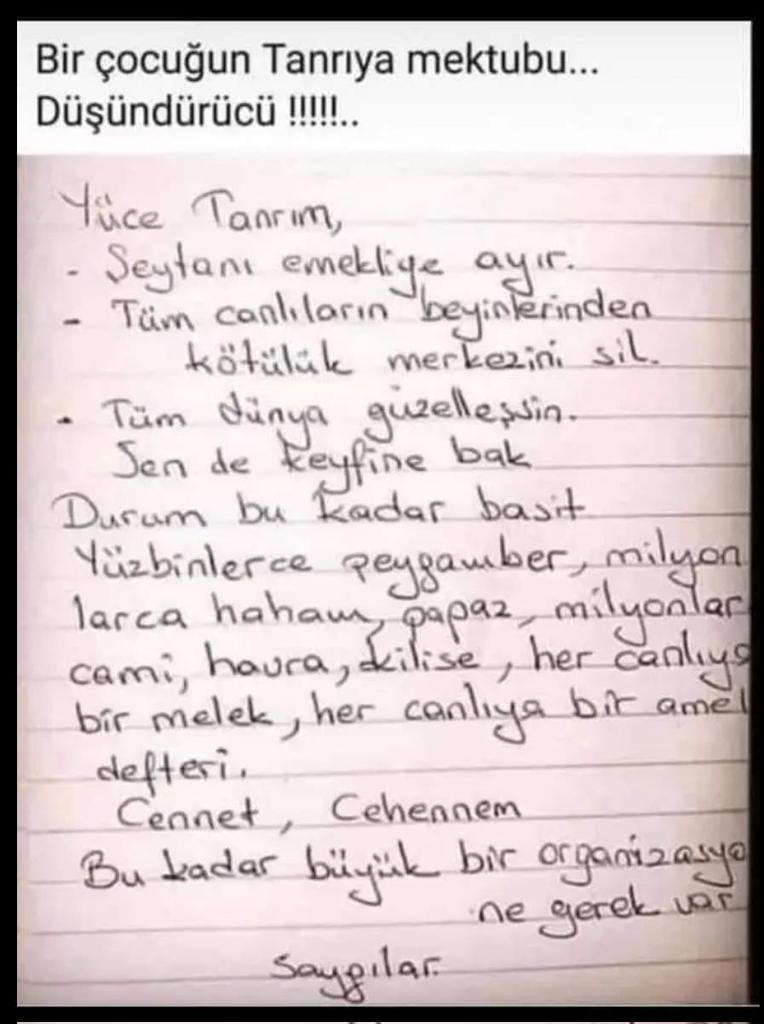 Bir çocuğun Tanrıya mektubu...
Düşündürücü !!!!!..
Yüce Tanrım,
- Şeytanı emekliye ayır.
- Tüm canlıların beyinlerinden
kötülük merkezini sil.
- Tüm dünya güzelleşsin.
Sen de keyfine bak
Durum bu kadar basit
Yüzbinlerce peygamber, milyon
larca haham, papaz, milyonlar
cami, havra, kilise, her canlıya
bir melek, her canlıya bir amel
defteri.
Cennet, Cehennem
Bu kadar büyük bir organizasyo
ne gerek var
Saygılar.